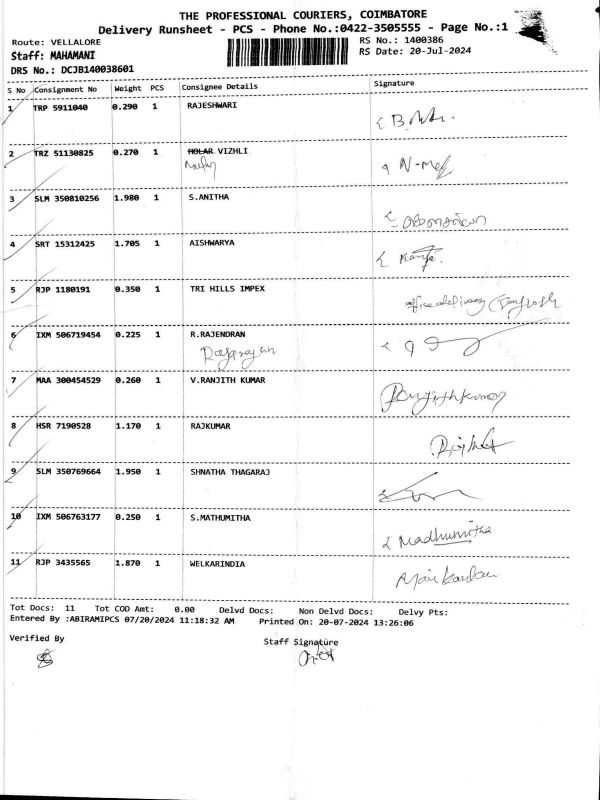 THE PROFESSIONAL COURIERS, COIMBATORE
Delivery Runsheet - PCS - Phone No.:0422-3505555 - Page No.:1
Route: VELLALORE RS No.: 1400386
Staff: MAHAMANI RS Date: 20-Jul-2024
DRS No.: DCJB140038601
S No Consignment No Weight PCS Consignee Details Signature
1 TRP 5911040 0.290 1 RAJESHWARI
2 TRZ 51130825 0.270 1 MOLAR VIZHLI
3 SLM 350810256 1.980 1 S.ANITHA
4 SRT 15312425 1.705 1 AISHWARYA
5 RJP 1180191 0.350 1 TRI HILLS IMPEX
office delivery
6 IXM 506719454 0.225 1 R.RAJENDRAN
7 MAA 300454529 0.260 1 V.RANJITH KUMAR
Ranjithkumar
8 HSR 7190528 1.170 1 RAJKUMAR
9 SLM 350769664 1.950 1 SHNATHA THAGARAJ
10 IXM 506763177 0.250 1 S.MATHUMITHA
Madhumitha
11 RJP 3435565 1.870 1 WELKARINDIA
Tot Docs: 11 Tot COD Amt: 0.00 Delvd Docs: Non Delvd Docs: Delvy Pts:
Entered By :ABIRAMIPCS 07/20/2024 11:18:32 AM Printed On: 20-07-2024 13:26:06
Verified By Staff Signature